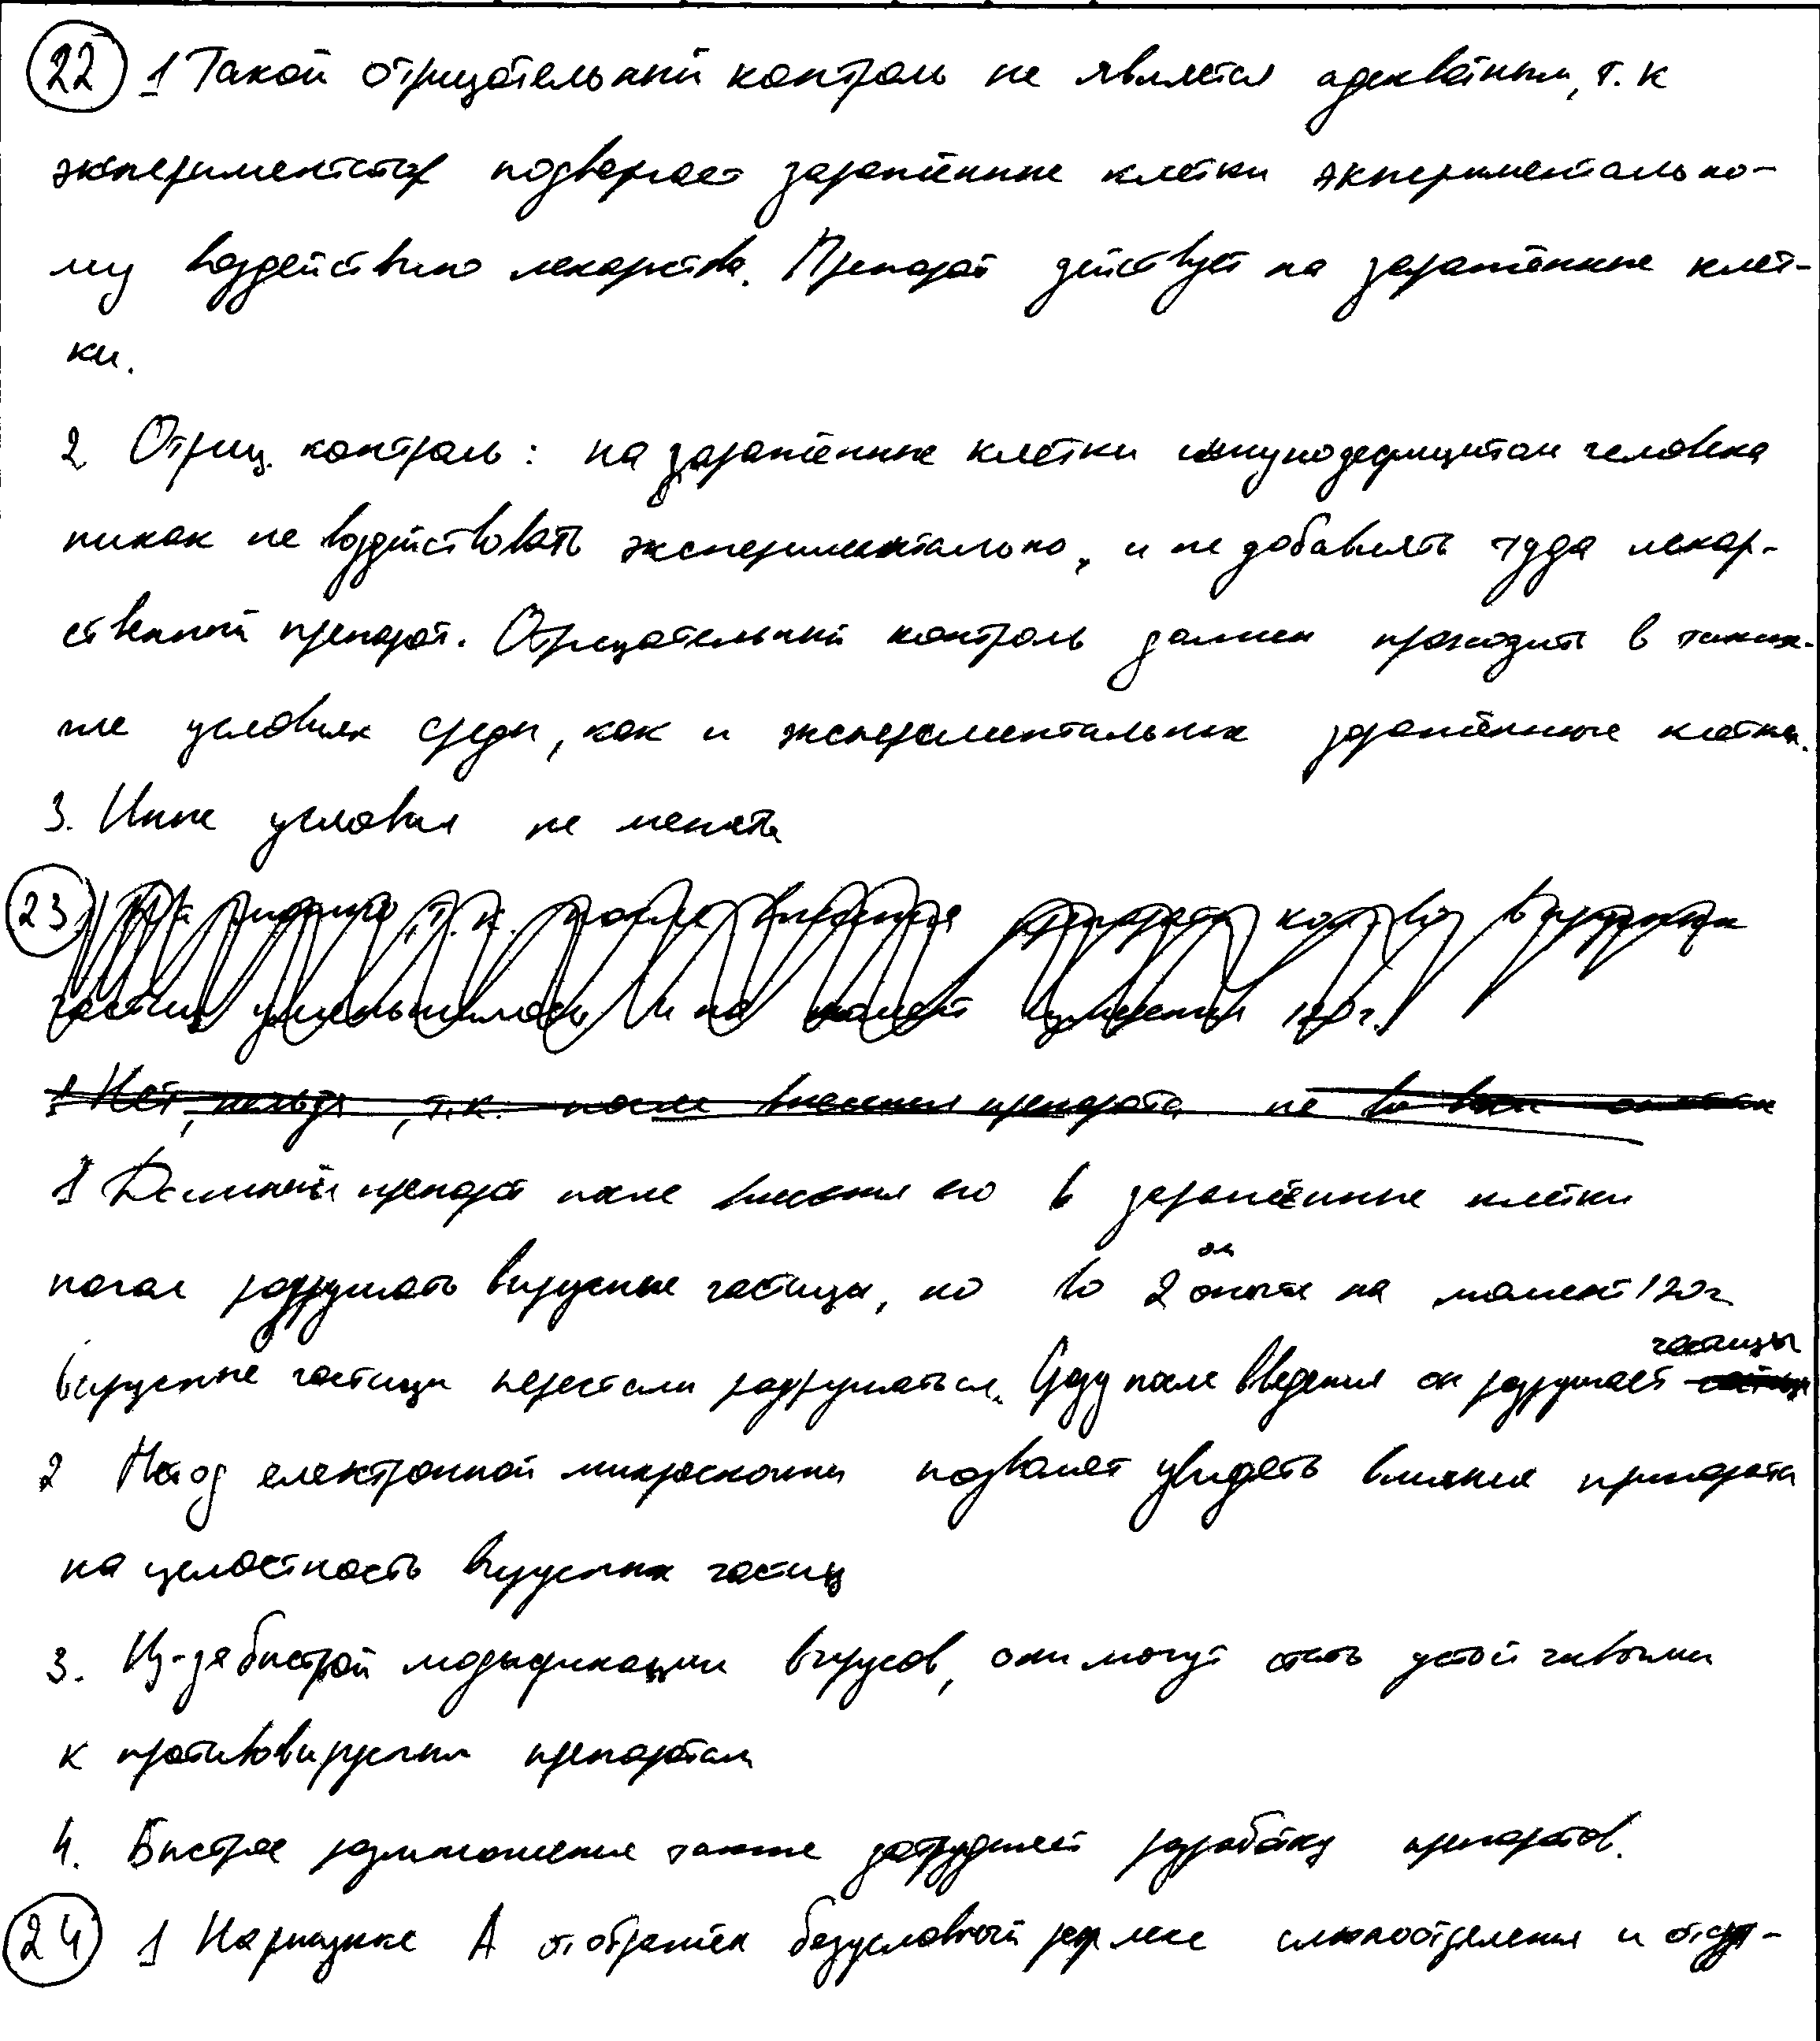 22 1 Такой отрицательный контроль не является адекватным, т. к
экспериментатор подвергает заражённые клетки экпериментально-
му воздействию лекарства. Препарат действует на заражённые клет-
ки.
2 Отриц. контроль: на заражённые клетки иммунодефицитом человека
никак не воздействовать экспериментально, и не добавлять туда лекар-
ственный препарат. Отрицательный контроль должен проходить в таких-
же условиях среды, как и экспериментальных заражённые клетки.
3. Иные условия не менять
23 т. к. после внесения препарата кол-во вирусных
частиц уменьшилось и на момент измерения 120 г.
1 Нет, нельзя, т.к. после внесения препарата не во всех опытах
1 Данный препарат после внесения его в заражённые клетки
начал разрушать вирусные частицы, но во 2 ом опыте на момент 120 г
вирусные частицы перестали разрушаться. Сразу после введения он разрушает частицы
2 Метод електронной микроскопии позволяет увидеть влияния препарата
на целостность вирусных частиц
3. Из-за быстрой модификации вирусов, они могут стать устойчивыми
к противовирусным препаратам
4. Быстрое размножение также затрудняет разработку препаратов.
24 1 На рисунке А отображён безусловный рефлекс слюноотделения и отсут-